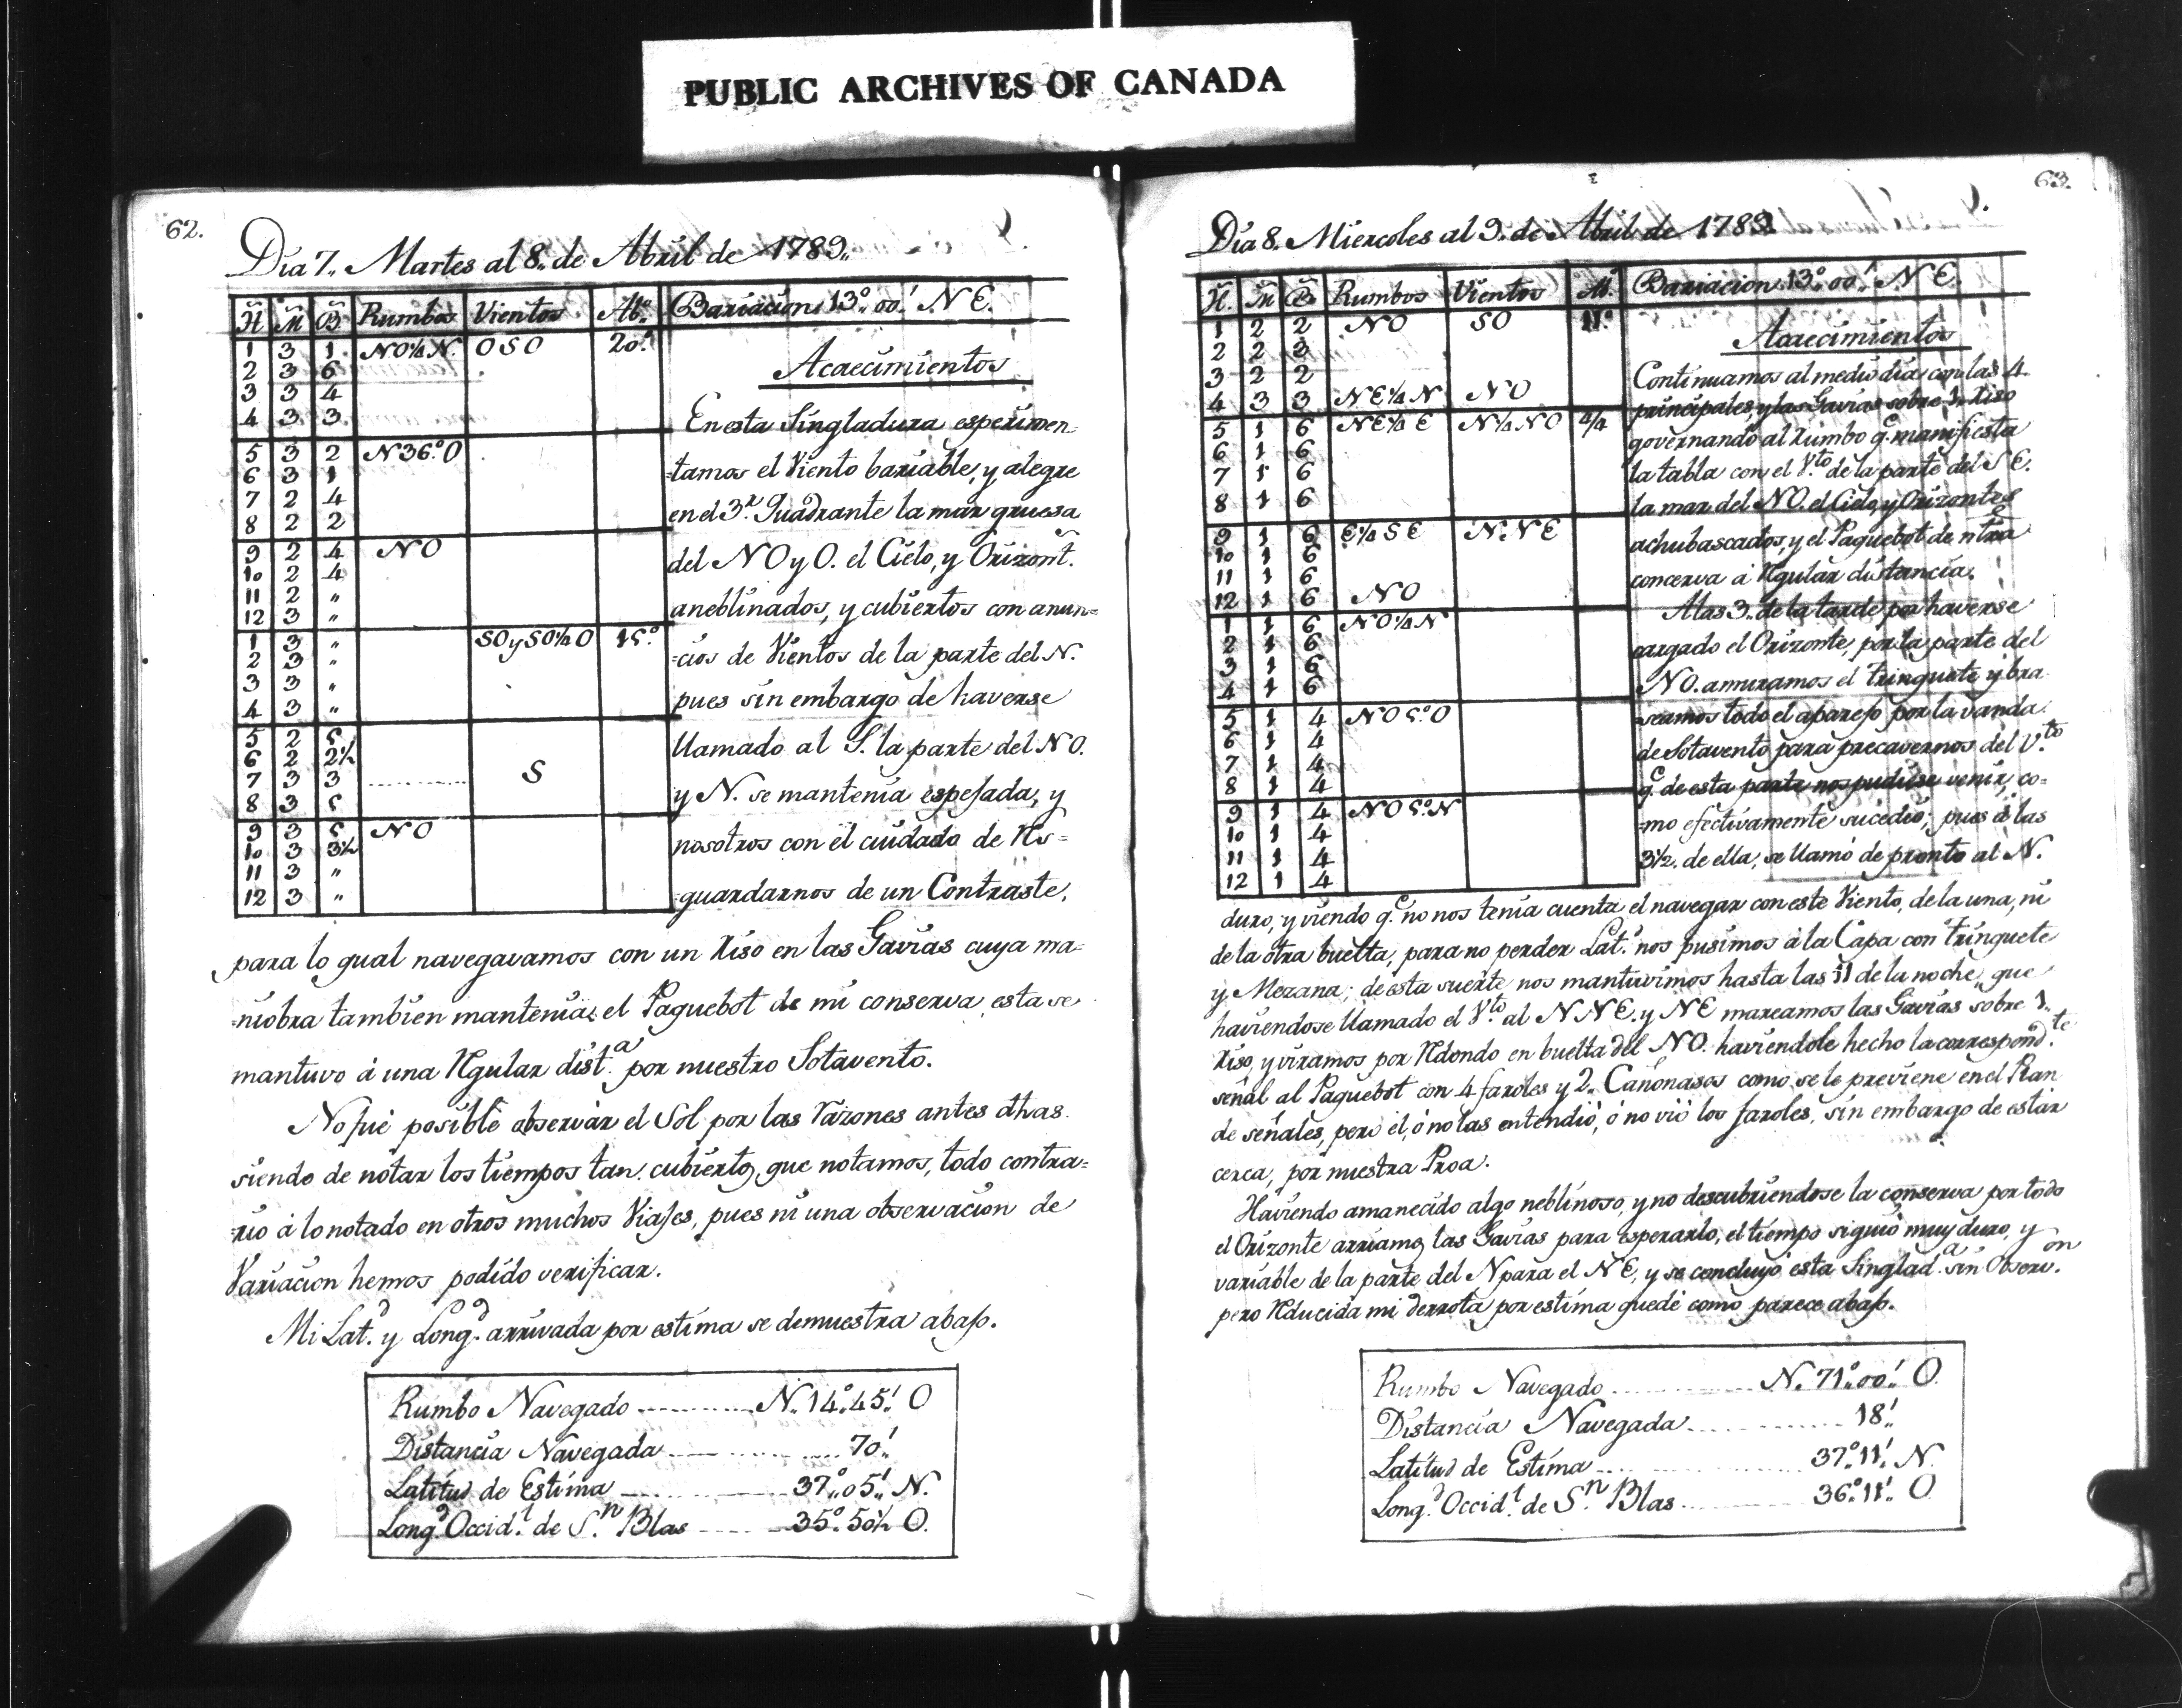 PUBLIC ARCHIVES OF CANADA
62.
Dia 7,, Martes al 8,, de Abril de 1789,,
H M B Rumbos Vientos Ab.º Bariacion 13º,,00' NE.
1 3 1 NO¼N. OSO 20.º
2 3 6
3 3 4
4 3 3
5 3 2 N36.ºO
6 3 1
7 2 4
8 2 2
9 2 4 NO
10 2 4
11 2 "
12 3 "
1 3 " SO y SO¼O 15.º
2 3 "
3 3 "
4 3 "
5 2 5
6 2 2½
7 3 3 ............ S
8 3 5
9 3 5 NO
10 3 3½
11 3 "
12 3 "
Acaecimientos
En esta Singladura esperimen-
=tamos el Viento bariable, y alegre
en el 3.r Quadrante la mar gruesa
del NO y O. el Cielo, y Orizont.
aneblinados, y cubiertos con anun=
=cios de Vientos de la parte del N.
pues sin embargo de haverse
llamado al S. la parte del NO.
y N. se mantenia espesada, y
nosotros con el cuidado de Rs=
=guardarnos de un Contraste,
para lo qual navegavamos con un Riso en las Gavias cuya ma=
=niobra tambien mantenia el Paquebot de mi conserva esta se
mantuvo à una Rgular dist.a por nuestro Sotavento.
No fué posible observar el Sol por las razones antes dhas.
siendo de nótar los tiempos tan cubiertos, que notamos, todo contra=
=rio à lo notado en otros muchos Viajes, pues ni una observacion de
Variacion hemos podido verificar.
Mi Lat.d y Long.d arrivada por estima se demuestra abajo.
Rumbo Navegado ............ N,,14º,,45' O
Distancia Navegada ............ 70'
Latitud de Estima ............ 37º,,05' N.
Long.d Occid.t de S.n Blas ............ 35º,,50½ O.
63.
Dia 8,, Miercoles al 9,, de Abril de 1789
H. M B Rumbos Vientos Ab.º Bariacion 13º,,00' NE.
1 2 2 NO SO 11º
2 2 3
3 2 2
4 3 3 NE¼N NO
5 1 6 NE¼E N¼NO 4/4
6 1 6
7 1 6
8 1 6
9 1 6 E¼SE N.NE
10 1 6
11 1 6
12 1 6 NO
1 1 6 NO¼N
2 1 6
3 1 6
4 1 6
5 1 4 NO5.ºO
6 1 4
7 1 4
8 1 4
9 1 4 NO5.ºN
10 1 4
11 1 4
12 1 4
Acaecimientos
Continuamos al medio dia con las 4
principales, y las Gavias sobre 1. Riso
governando al Rumbo q.e manifiesta
la tabla con el V.to de la parte del SE.
la mar del NO. el Cielo, y Orizontes
achubascados, y el Paquebot de ntra
concerva à Rgular distancia.
A las 3,, de la tarde por haverse
cargado el Orizonte, por la parte del
NO. amuramos el trinquete y bra
=seamos todo el aparejo por la vanda
de Sotavento para precavernos del V.to
q.e de esta parte nos pudiese venir, co=
=mo efectivamente sucedió; pues à las
3½. de ella, se llamó de pronto al N.
duro, y viendo q.e no nos tenia cuenta el navegar con este Viento, de la una, ni
de la otra buelta, para no perder Lat.d nos pusimos à la Capa con trinquete
y Mezana; de esta suerte nos mantuvimos hasta las 11 de la noche, que
haviendose llamado el V.to al NNE. y NE mareamos las Gavias sobre 1.
Riso, y viramos por Rdondo en buelta del NO. haviendole hecho la correspond.te
señal al Paquebot con 4 faroles y 2,, Cañonasos como se le previene en el Plan
de señales, pero él, ó no las entendió, ó no vió los faroles, sin embargo de estar
cerca, por nuestra Proa.
Haviendo amanecido algo neblinoso, y no descubriendose la conserva por todo
el Orizonte arriamos las Gavias para esperarlo, el tiempo siguió muy duro, y
variable de la parte del N para el NE, y se concluyó esta Singlad.a sin Observ.on
pero Rducida mi derrota por estima quedé como parece abajo.
Rumbo Navegado ............ N. 71º,,00' O.
Distancia Navegada ............ 18'
Latitud de Estima ............ 37º,,11' N.
Long.d Occid.t de S.n Blas ............ 36º,,11' O